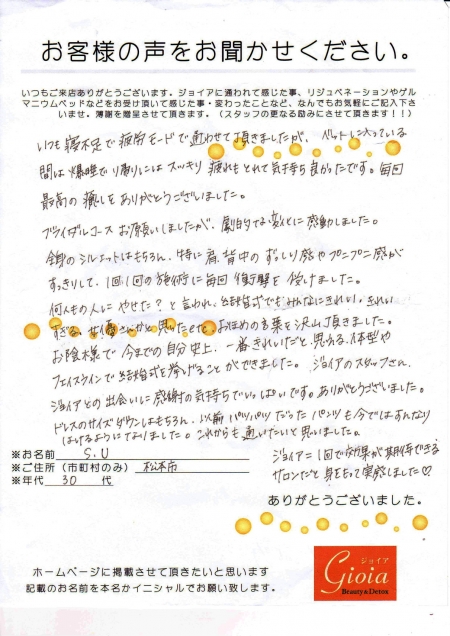 お客様の声をお聞かせください。
いつもご来店ありがとうございます。ジョイアに通われて感じた事、リジュベネーションやゲル
マニウムベッドなどをお受け頂いて感じた事・変わったことなど、なんでもお気軽にご記入下さ
いませ。薄謝を贈呈させて頂きます。（スタッフの更なる励みにさせて頂きます！！）
いつも寝不足で疲労モードで通わせて頂きましたが、ベットに入っている
間は爆睡で帰りにはスッキリ疲れもとれて気持ち良かったです。毎回
最高の癒しをありがとうございました。
ブライダルコースお願いしましたが、劇的な変化に感動しました。
全身のシルエットはもちろん、特に肩、背中のずっしり感やプニプニ感が
すっきりして、1回1回の施術に毎回衝撃を受けました。
何人もの人にやせた？と言われ、結婚式でもみんなにきれい、きれい
すぎる、女優さんかと思ったetc お褒めの言葉を沢山頂きました。
お陰様で今までの自分史上、一番きれいだと思える体型や
フェイスラインで結婚式を挙げることができました。ジョイアのスタッフさん、
ジョイアとの出会いに感謝の気持ちでいっぱいです。ありがとうございました。
ドレスのサイズダウンはもちろん、以前パツパツだったパンツも今ではすんなり
はけるようになりました。これからも通いたいと思いました。
ジョイアは1回で効果が期待できる
サロンだと身をもって実感しました♡
※お名前 S.U
※ご住所（市町村のみ） 松本市
※年代 30 代
ありがとうございました。
ホームページに掲載させて頂きたいと思います
記載のお名前を本名かイニシャルでお願い致します。
ジョイア
Gioia
Beauty&Detox